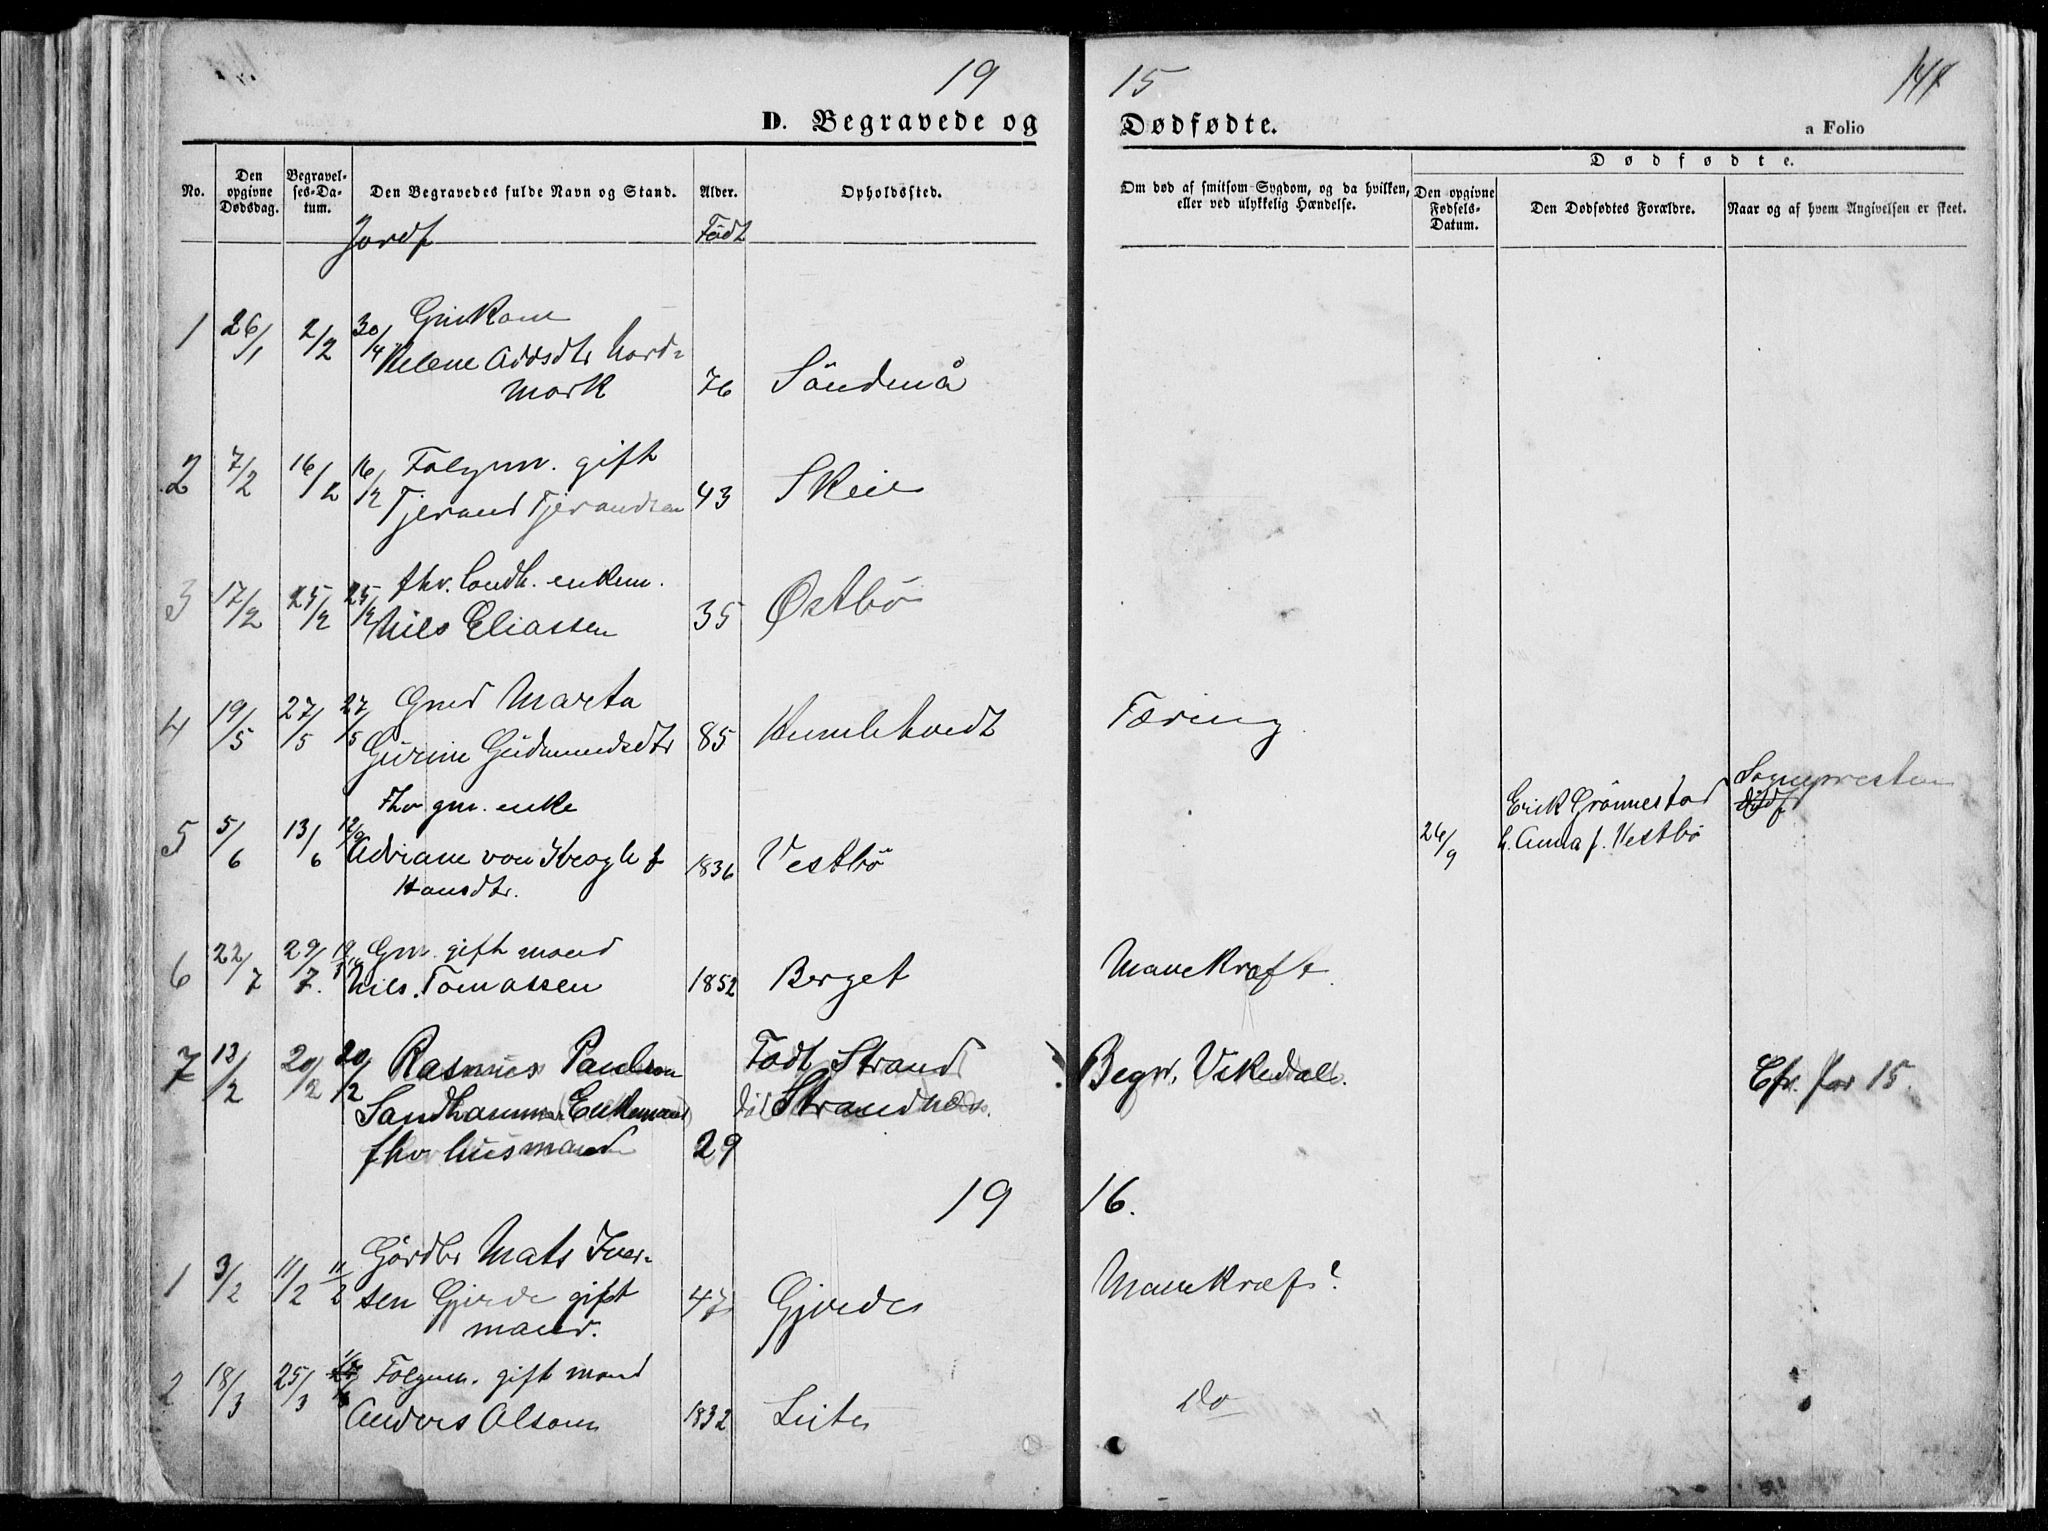 19 15 141
D. Begravede og Dødfødte.
a Folio
No.
Den opgivne Dødsdag.
Begravelses-Datum.
Den Begravedes fulde Navn og Stand.
Alder.
Opholdssted.
Om død af smitsom Sygdom, og da hvilken, eller ved ulykkelig Hændelse.
Dødfødte.
Den opgivne Fødsels-Datum.
Den Dødfødtes Forældre.
Naar og af hvem Angivelsen er skeet.
Jordf Født
1 26/1 2/2 30/4
Helene Addsdtr Nord=
mark 76 Söndenå
2 7/2 16/2 16/2 Folgm. gift
Tjerand Tjerandsen 43 Skeie
3 17/2 25/2 25/2 fhv. landh. enkem.
Nils Eliassen 35 Østbö
4 19/5 27/5 27/5 Marta
Gurine Gudmundsdtr 85 Humlekvedt Tæring
5 5/6 13/6 Fhv gm. enke
Adriane von Krogh f
Hansdtr. 1836 Vestbö
26/9 Erik Grönnestad
h. Anna f. Vestbö
Sognepresten
6 22/7 29/7. Gm. gift mand
Nils Tomassen 1852 Berget Mavekræft.
7 12/2 20/2 20/2 Rasmus Paulsen Födt Strand Begr. Vikedal. Cfr. for 15.
Sandhammer (Enkemand) Strandnes.
fhv husmand 29
19 16.
1 3/2 11/2 11/2 Gårdbr Mats Iver-
sen Gjerde gift 47 Gjerde Mavekræft?
mand.
2 18/3 25/3 Folgm. gift mand
Anders Olsen 1832 Leite Do